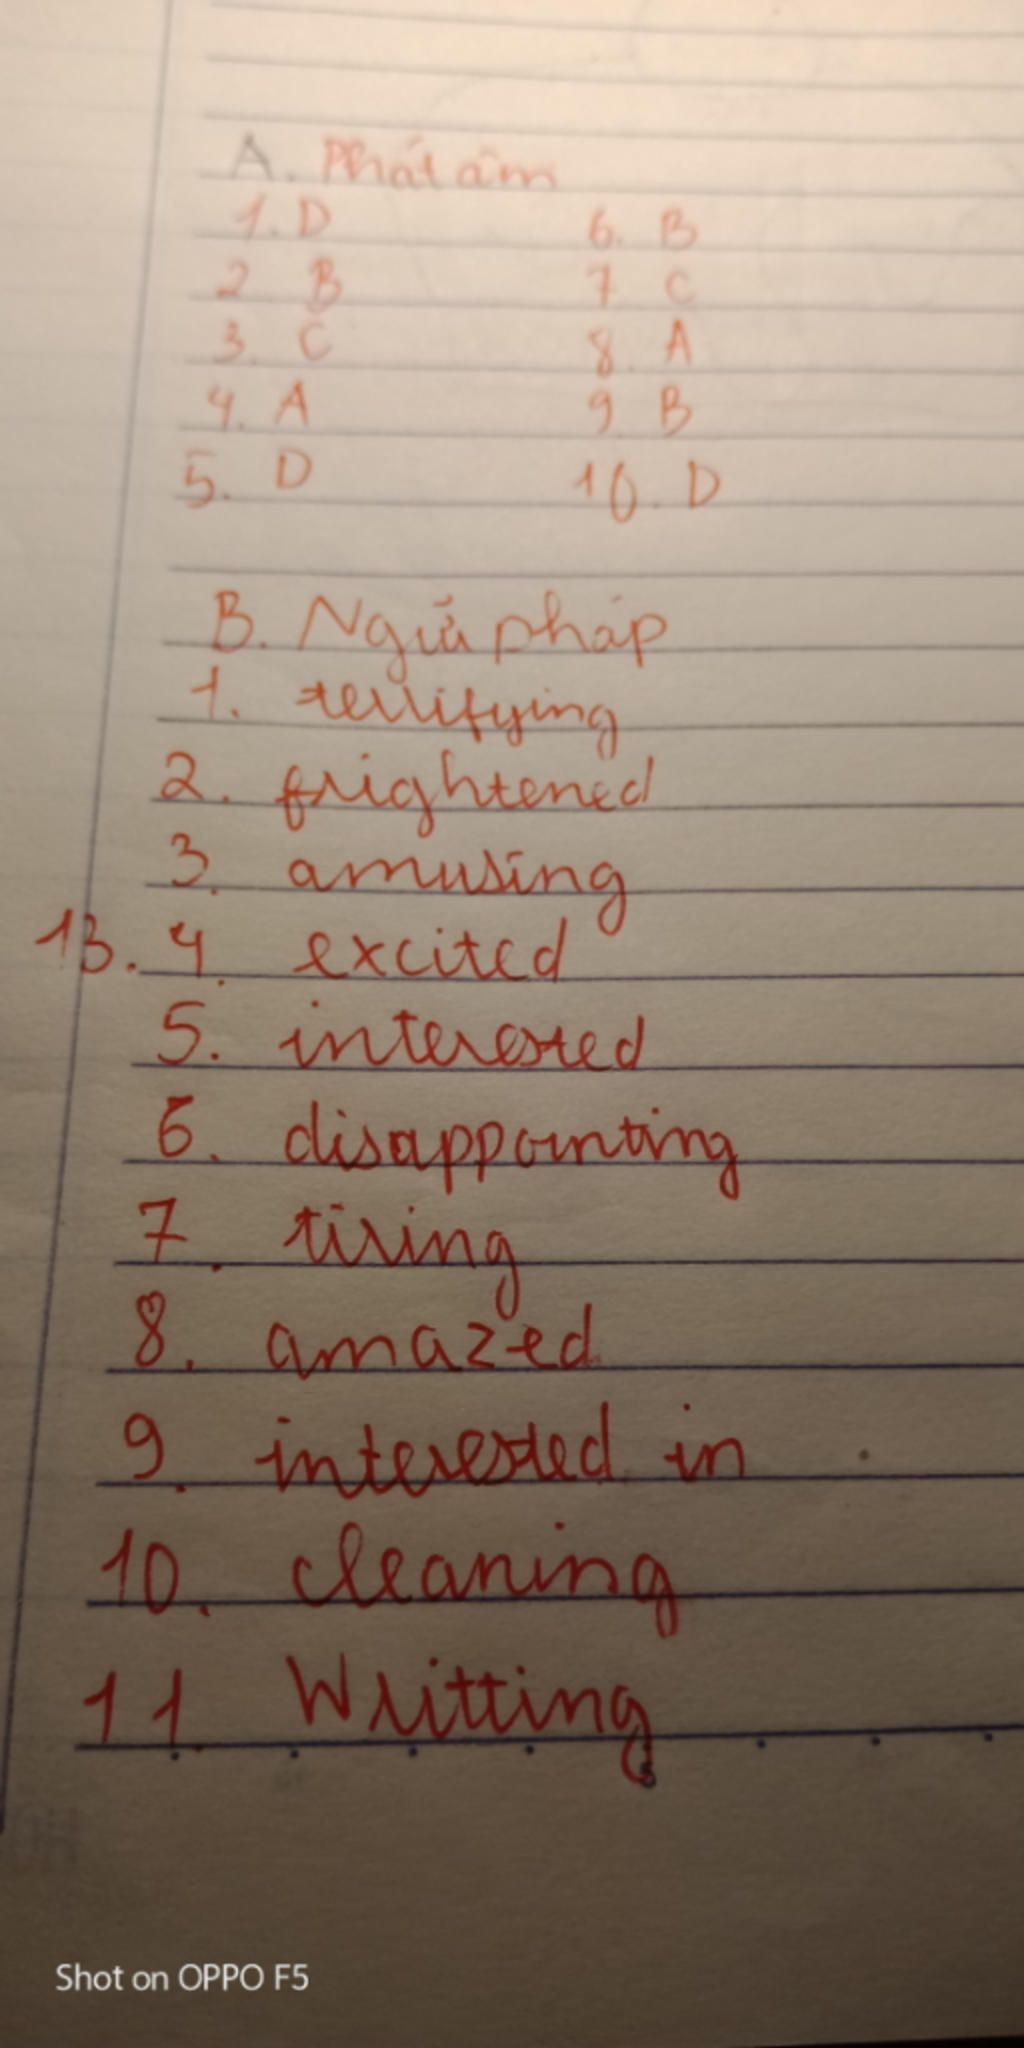 A. Phát âm
1. D 6. B
2 B 7 C
3. C 8. A
4. A 9. B
5. D 10. D
B. Ngữ pháp
1. terrifying
2. frightened
3. amusing
13. 4. excited
5. interested
6. disappointing
7. tiring
8. amazed
9. interested in
10. cleaning
11. Writting
Shot on OPPO F5